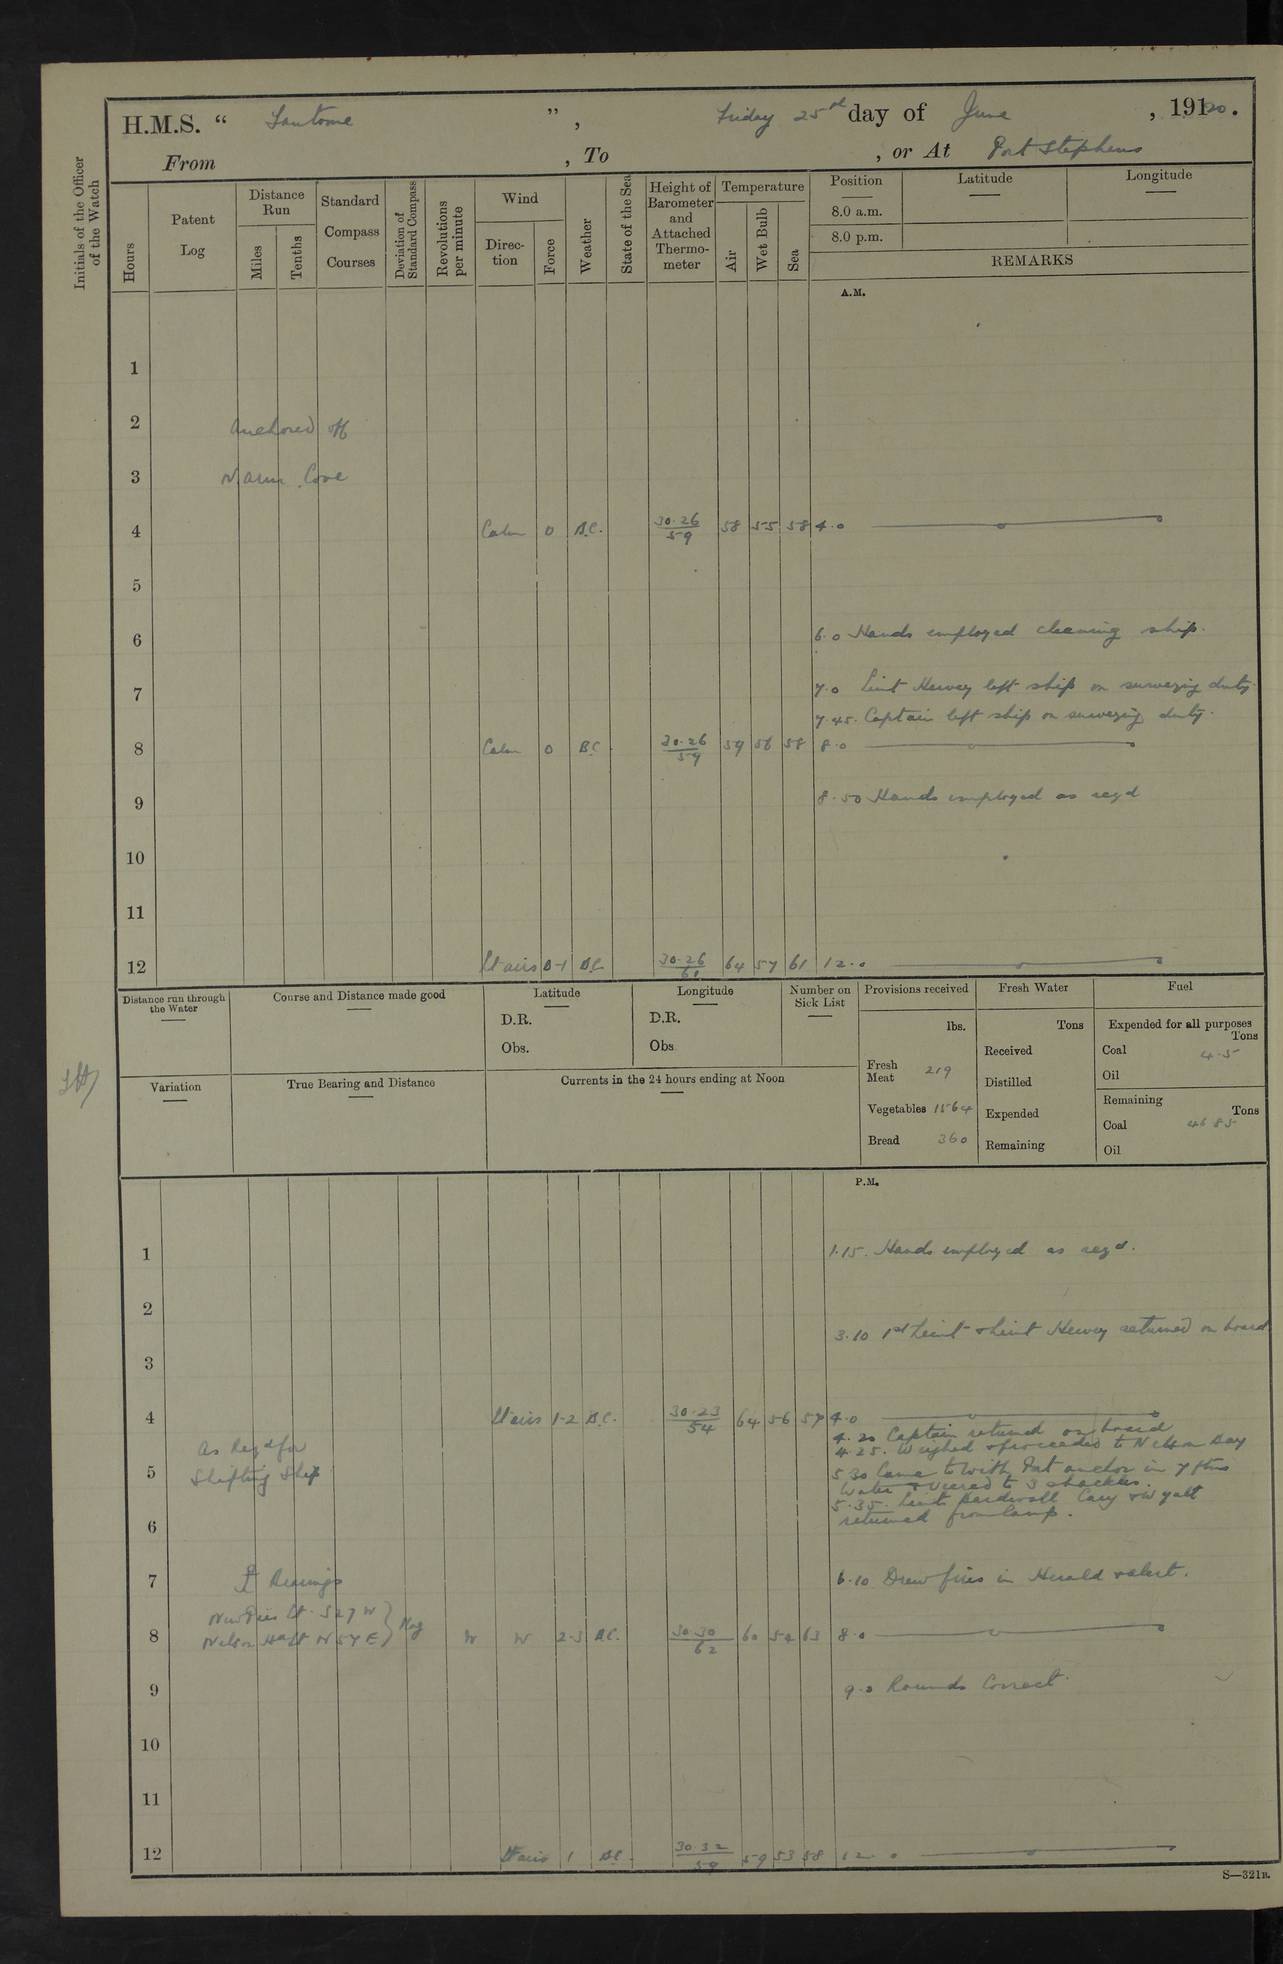 H.M.S. " Fantome ", Friday 25th day of June, 19120.
From , To , or At Port Stephens
Initials of the Officer of the Watch
Hours
Patent Log
Distance Run
Miles
Tenths
Standard Compass Courses
Deviation of Standard Compass
Revolutions per minute
Wind
Direction
Force
Weather
State of the Sea
Height of Barometer and Attached Thermometer
Temperature
Air
Wet Bulb
Sea
Position
8.0 a.m.
8.0 p.m.
Latitude
Longitude
REMARKS
A.M.
1
2 Anchored off
3 Cove
4 Calm 0 B.C. 30.26/59 58 55 58 4.0
5
6 6.0 Hands employed cleaning ship.
7 7.0 Lieut Hewey left ship on surveying duty.
7.45. Captain left ship on surveying duty.
8 Calm 0 BC. 30.26/59 59 56 58 8.0
9 8.50 Hands employed as reqd
10
11
12 Lt airs 0-1 BC 30.26/61 64 57 61 12.0
Distance run through the Water
Course and Distance made good
Latitude
D.R.
Obs.
Longitude
D.R.
Obs
Number on Sick List
Provisions received
lbs.
Fresh Meat 219
Vegetables 1564
Bread 360
Fresh Water
Tons
Received
Distilled
Expended
Remaining
Fuel
Expended for all purposes
Tons
Coal 4.5
Oil
Remaining
Tons
Coal 46 85
Oil
Variation
True Bearing and Distance
Currents in the 24 hours ending at Noon
P.M.
1 1.15. Hands employed as reqd.
2
3.10 1st Lieut & Lieut Hewey returned on board
3
4 Lt airs 1-2 B.C. 30.23/54 64 56 57 4.0
4.20 Captain returned on board
4.25. Weighed & proceeded to Nelson Bay
As Reqd for
5 Shifting Ship
5.30 Came to with Port anchor in 7 fms
water & veered to 3 shackles.
5.35. Lieuts Cary & Wyatt
returned from Camp.
6
7 Bearings 6.10 Drew fires in Herald & alert.
Lt. S 27 W
8 Nelson Hd Lt N 57 E } Mag W W 2-3 B.C. 30.30/62 60 54 63 8.0
9 9.0 Rounds Correct.
10
11
12 Lt airs 1 BC. 30.32/59 59 53 58 12.0
S—321B.